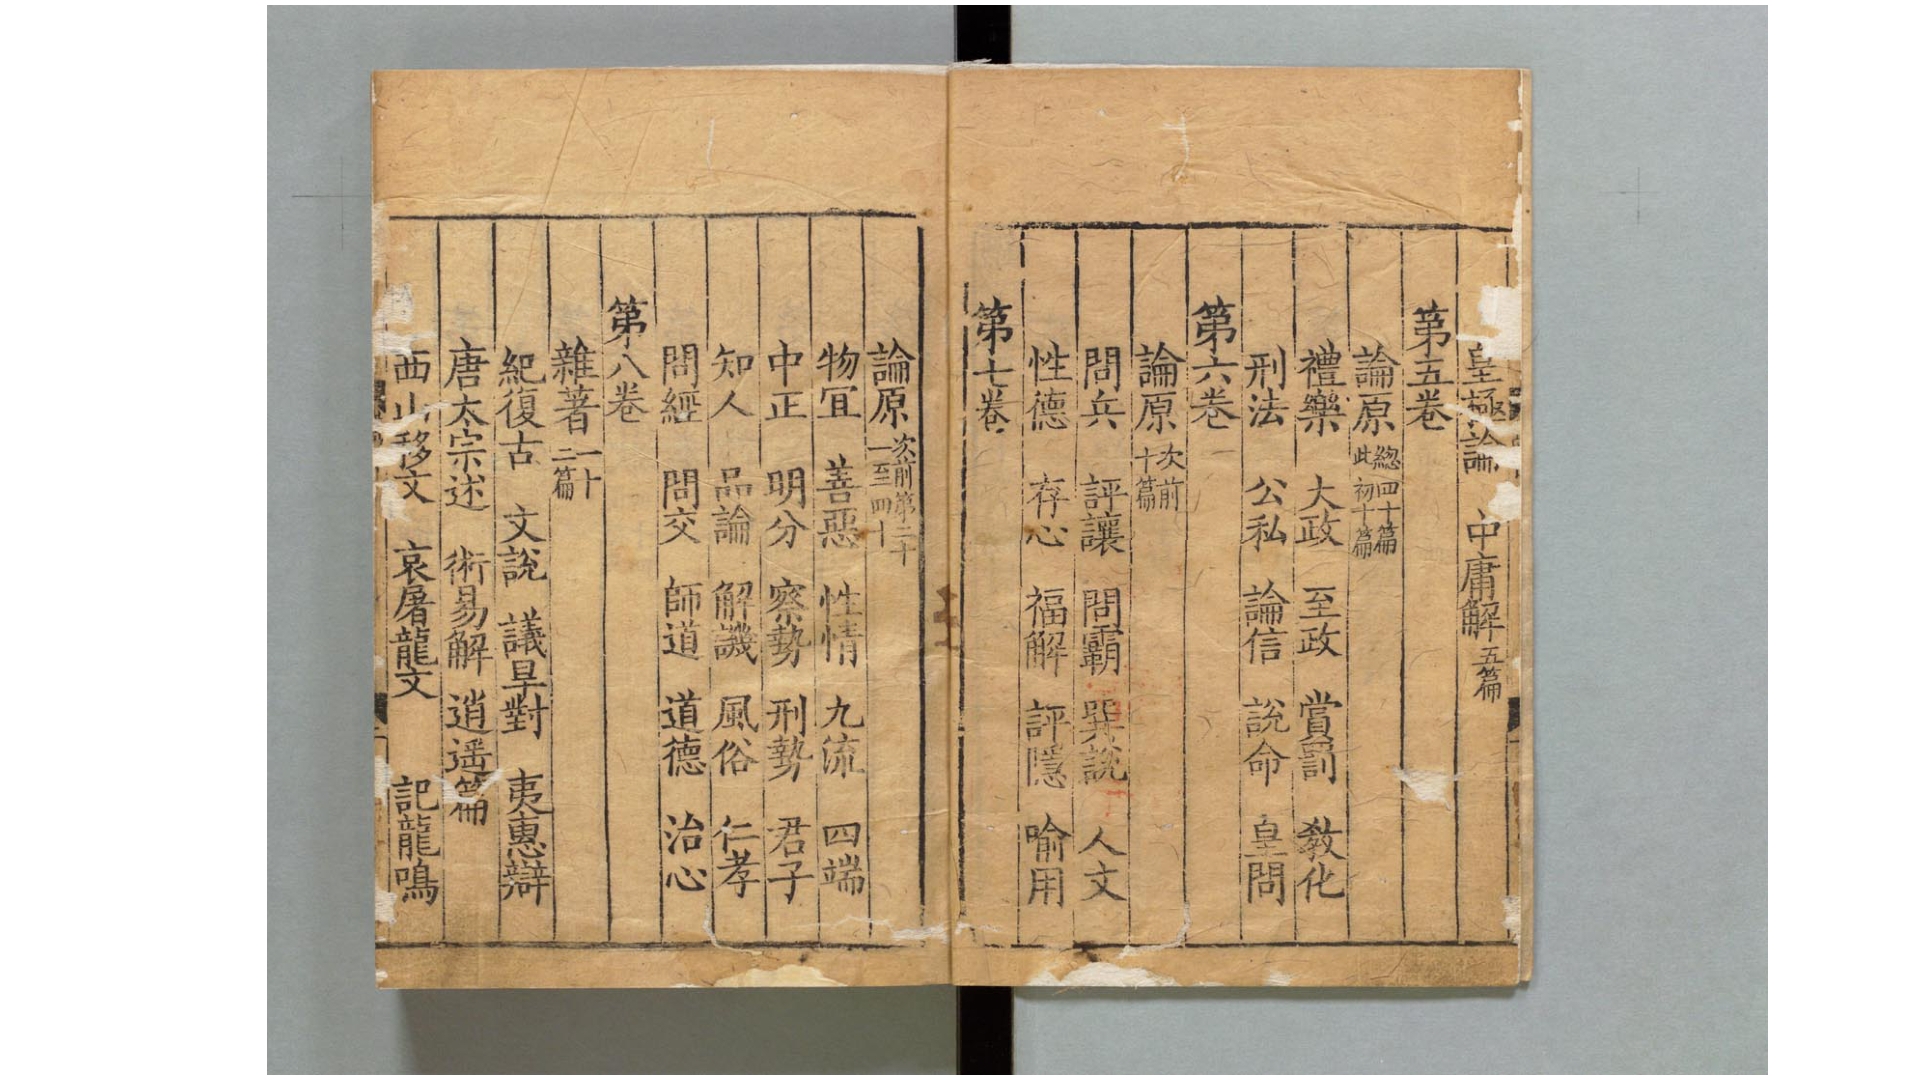 皇極論　中庸解五篇
第五卷
論原總四十篇此初十篇
禮樂　大政　至政　賞罰　敎化
刑法　公私　論信　說命　皇問
第六卷
論原次前十篇
問兵　評讓　問霸　巽說　人文
性德　存心　福解　評隱　喻用
第七卷
論原次前第二十一至四十
物宜　善惡　性情　九流　四端
中正　明分　察勢　刑勢　君子
知人　品論　解譏　風俗　仁孝
問經　問交　師道　道德　治心
第八卷
雜著一十二篇
紀復古　文說　議旱對　夷惠辯
唐太宗述　術易解　逍遥篇
西山移文　哀屠龍文　記龍鳴